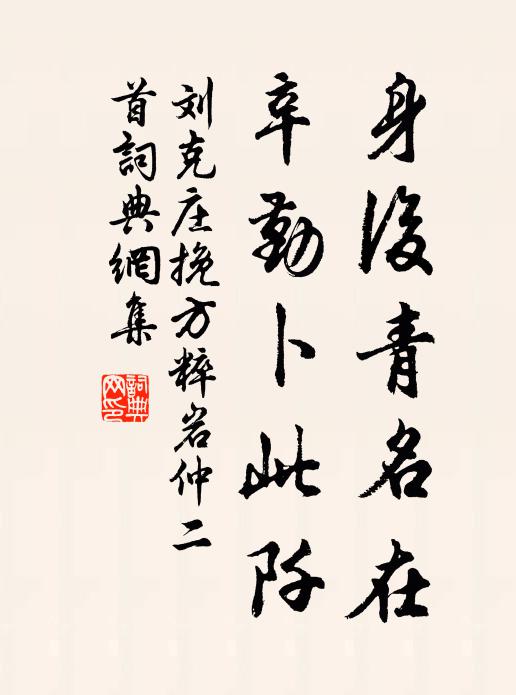 身後青名在
辛勤卜此阡
刘克庄挽方粹岩仲二
首詞典網集
詞典
网印